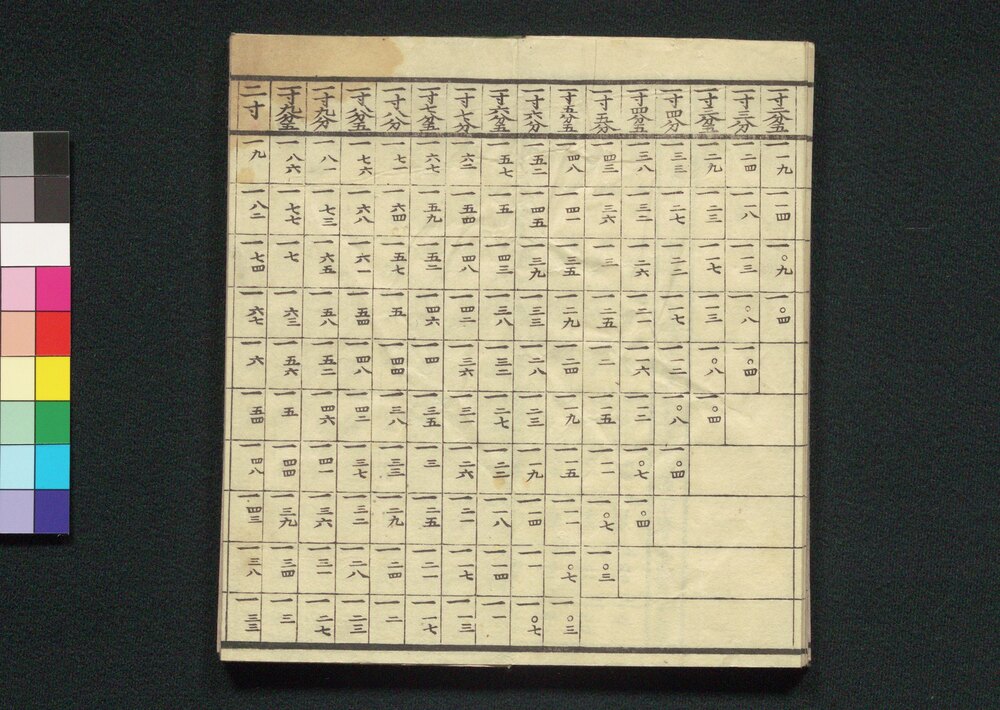 一寸二分五 一一九 一一四 一〇九 一〇四
一寸三分 一二四 一一八 一一三 一〇八 一〇四
一寸三分五 一二九 一二三 一一七 一一三 一〇八 一〇四
一寸四分 一三三 一二七 一二二 一一七 一一二 一〇八 一〇四
一寸四分五 一三八 一三二 一二六 一二一 一一六 一一二 一〇七 一〇四
一寸五分 一四三 一三六 一三 一二五 一二 一一五 一一一 一〇七 一〇三
一寸五分五 一四八 一四一 一三五 一二九 一二四 一一九 一一五 一一一 一〇七 一〇三
一寸六分 一五二 一四五 一三九 一三三 一二八 一二三 一一九 一一四 一一 一〇七
一寸六分五 一五七 一五 一四三 一三八 一三二 一二七 一二二 一一八 一一四 一一
一寸七分 一六二 一五四 一四八 一四二 一三六 一三一 一二六 一二一 一一七 一一三
一寸七分五 一六七 一五九 一五二 一四六 一四 一三五 一三 一二五 一二一 一一七
一寸八分 一七一 一六四 一五七 一五 一四四 一三八 一三三 一二九 一二四 一二
一寸八分五 一七六 一六八 一六一 一五四 一四八 一四二 一三七 一三二 一二八 一二三
一寸九分 一八一 一七三 一六五 一五八 一五二 一四六 一四一 一三六 一三一 一二七
一寸九分五 一八六 一七七 一七 一六三 一五六 一五 一四四 一三九 一三四 一三
二寸 一九 一八二 一七四 一六七 一六 一五四 一四八 一四三 一三八 一三三